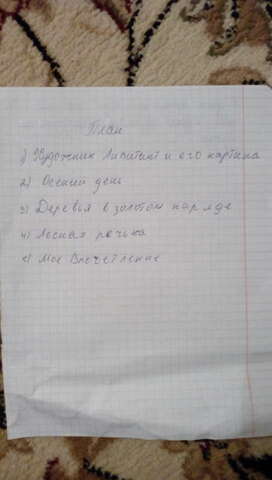 План
1) Художник Левитан и его картина
2) Осений день
3) Деревья в золотом наряде
4) Лесная речька
5) Мое впечетление